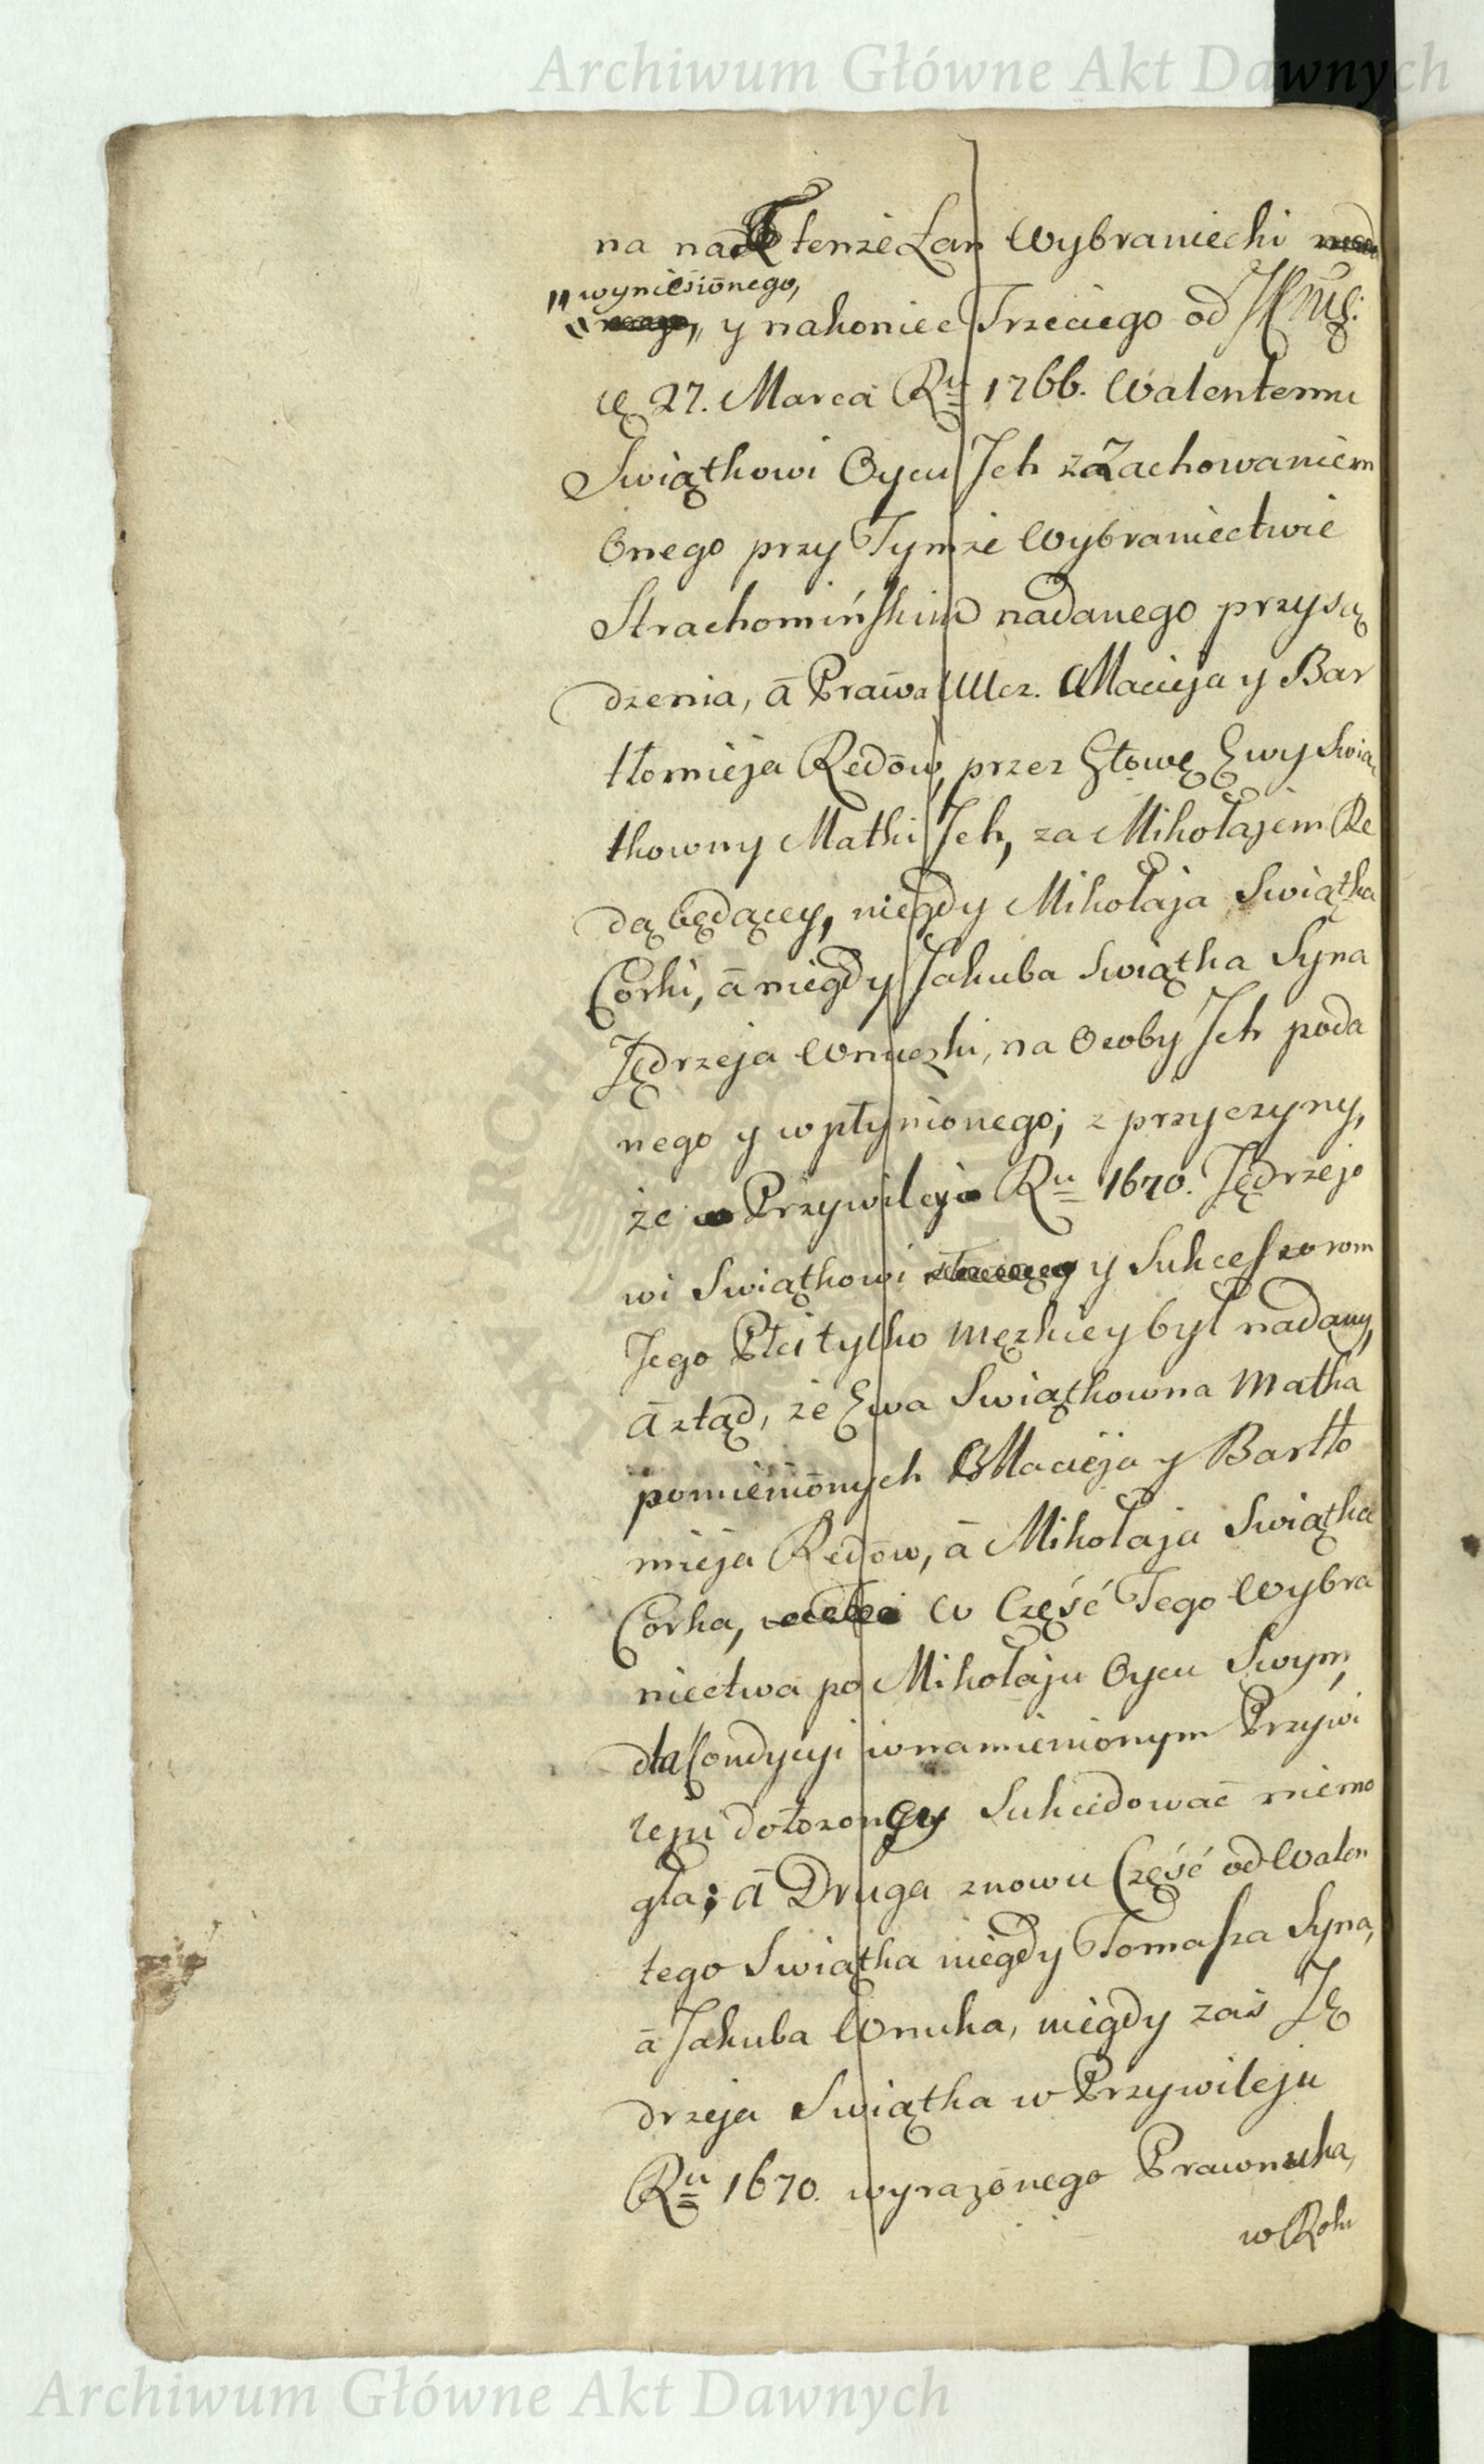 Archiwum Główne Akt Dawnych
na nad tenże Łan Wybraniecki
wyniesionego,
y nakoniec Trzeciego od
27. Marca Ru 1766. Walentemu
Swiątkowi Oycu Jch za Zachowaniem
Onego przy Tymże Wybraniectwie
Strachomińskim nadanego przysą
dzenia, ā Prawa Ucz. Macieja y Bar
tłomieja Redōw, przez Głowę Ewy Swią
tkowny Matki Jch, za Mikołajem Re
dą będącey, niegdy Mikołaja Swiątka
Corki, ā niegdy Jakuba Swiątka Syna
Jędrzeja Wnuczki, na Osoby Jch poda
nego y wpłynionego; z przyczyny,
że Przywiley Ru 1670. Jędrzejo
wi Swiątkowi y Sukcesszorom
Jego Płci tylko męzkiey był nadany,
ā ztąd, że Ewa Swiątkowna Matka
pomienionych Macieja y Bartło
mieja Redōw, ā Mikołaja Swiątka
Corka, w Część Tego Wybra
niectwa po Mikołaju Oycu Swym,
dla Condycyi wnamienionym Przywi
leju dołozoney Sukcedowac niemo
gła; ā Druga znowu Część od Walen
tego Swiątka niegdy Tomasza Syna,
ā Jakuba Wnuka, niegdy zaś Ję
drzeja Swiątka w Przywileju
Ru 1670. wyrazōnego Prawnuka,
w Roku
Archiwum Główne Akt Dawnych